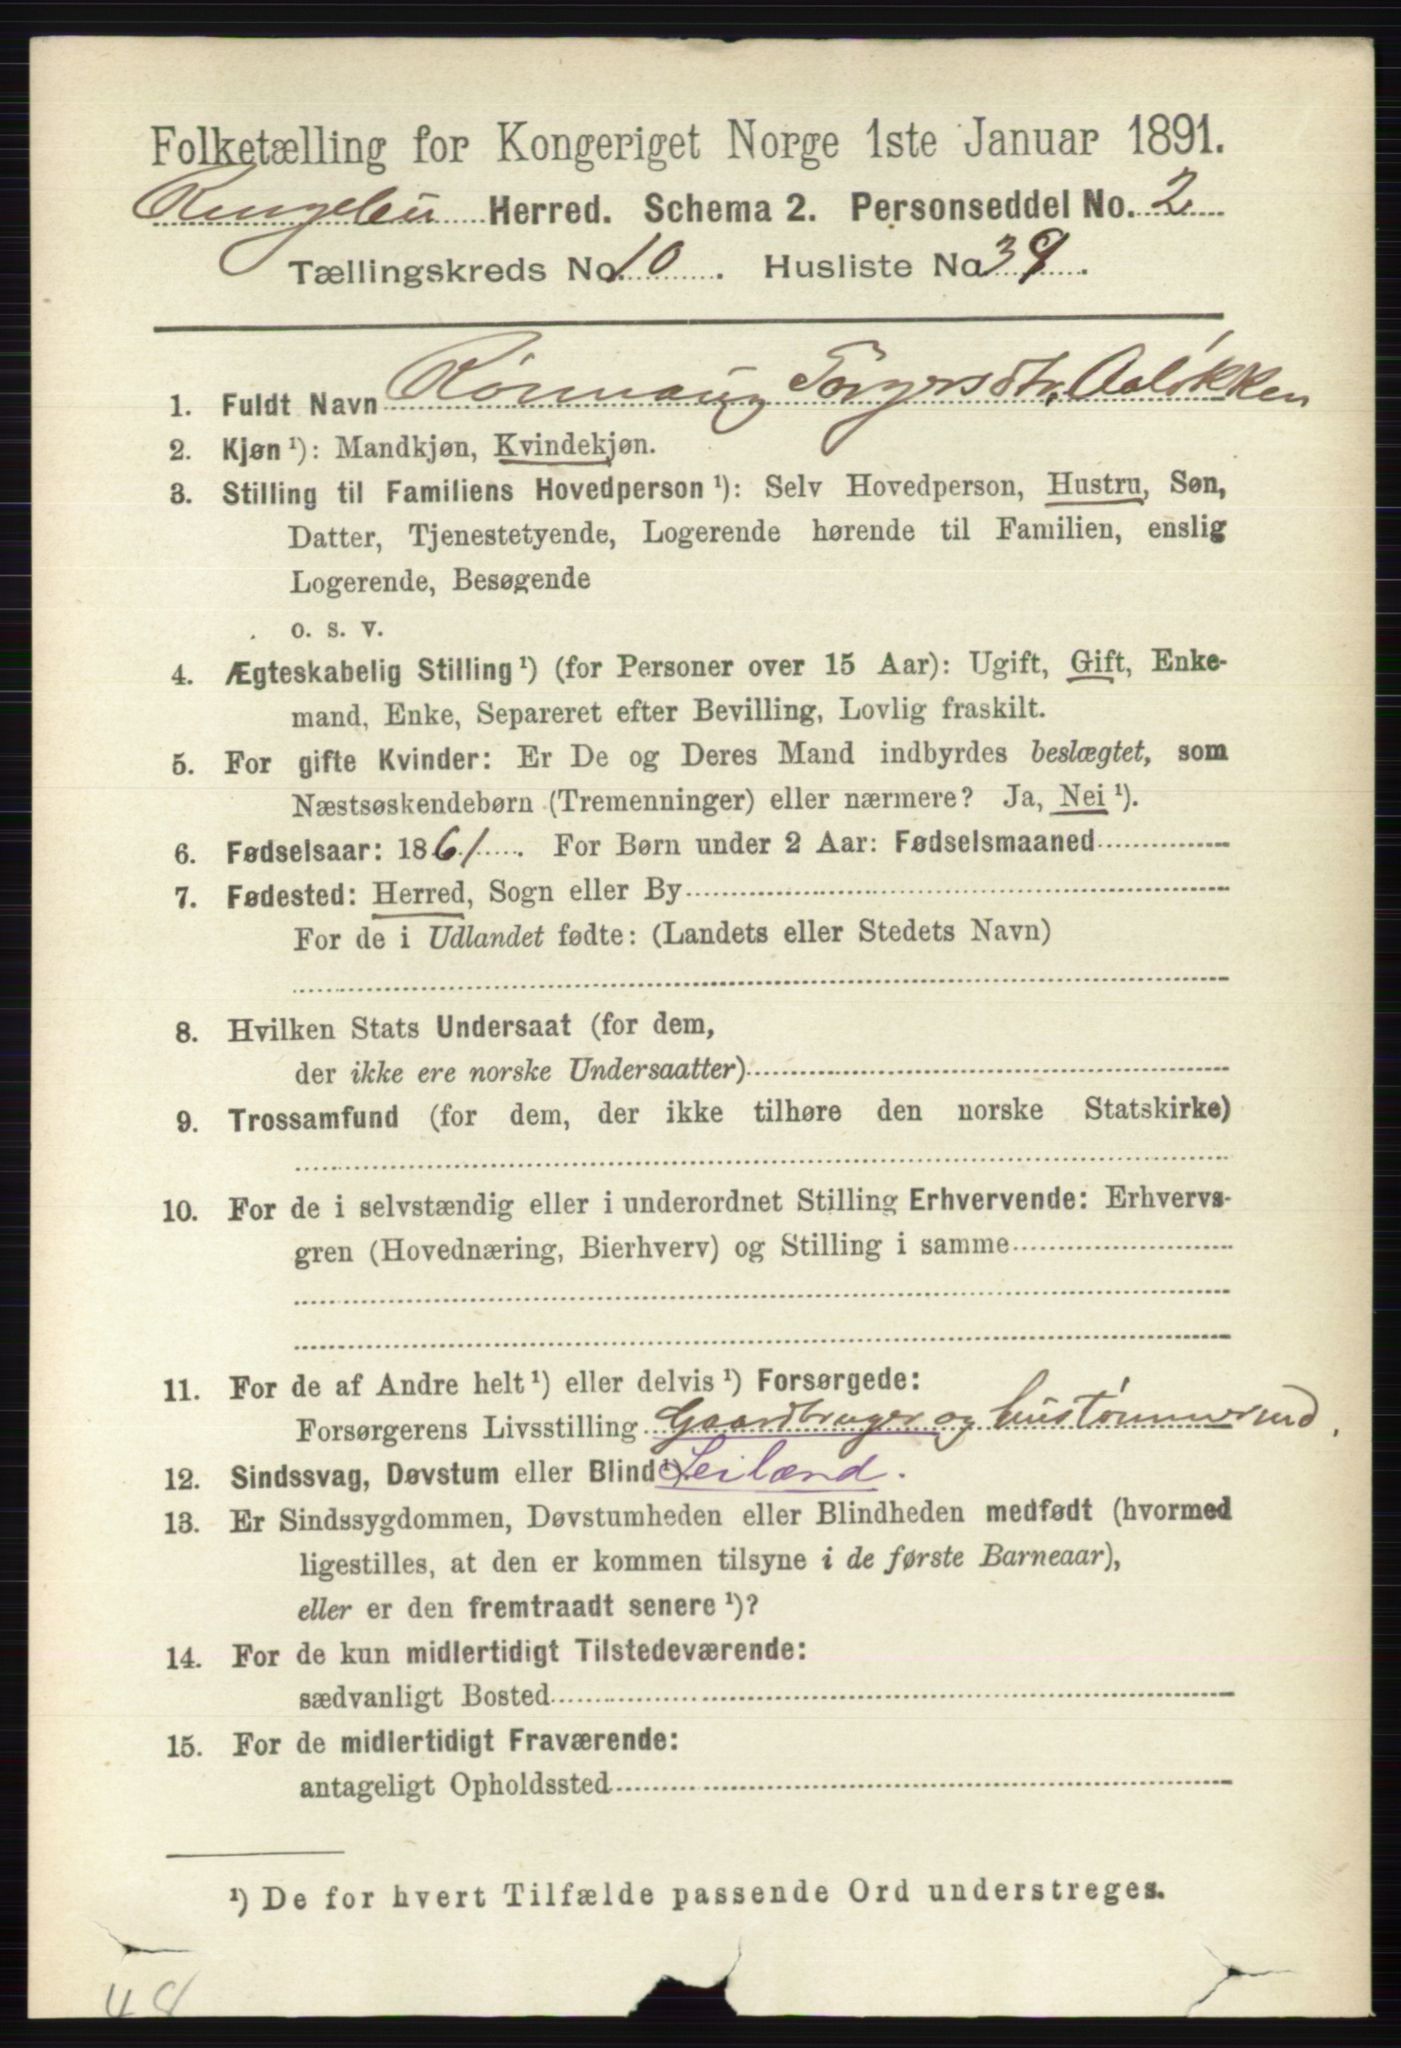 Folketælling for Kongeriget Norge 1ste Januar 1891.
Ringebu Herred. Schema 2. Personseddel No. 2
Tællingskreds No. 10. Husliste No 39.
1. Fuldt Navn Rønnaug Torgersdtr. Aaløkken
2. Kjøn ¹): Mandkjøn, Kvindekjøn.
3. Stilling til Familiens Hovedperson ¹): Selv Hovedperson, Hustru, Søn,
Datter, Tjenestetyende, Logerende hørende til Familien, enslig
Logerende, Besøgende
o. s. v.
4. Ægteskabelig Stilling ¹) (for Personer over 15 Aar): Ugift, Gift, Enke-
mand, Enke, Separeret efter Bevilling, Lovlig fraskilt.
5. For gifte Kvinder: Er De og Deres Mand indbyrdes beslægtet, som
Næstsøskendebørn (Tremenninger) eller nærmere? Ja, Nei ¹).
6. Fødselsaar: 1861. For Børn under 2 Aar: Fødselsmaaned
7. Fødested: Herred, Sogn eller By
For de i Udlandet fødte: (Landets eller Stedets Navn)
8. Hvilken Stats Undersaat (for dem,
der ikke ere norske Undersaatter)
9. Trossamfund (for dem, der ikke tilhøre den norske Statskirke)
10. For de i selvstændig eller i underordnet Stilling Erhvervende: Erhvervs-
gren (Hovednæring, Bierhverv) og Stilling i samme
11. For de af Andre helt ¹) eller delvis ¹) Forsørgede:
Forsørgerens Livsstilling Gaardbruger og hustømmermd.
12. Sindssvag, Døvstum eller Blind ¹) Leilænd.
13. Er Sindssygdommen, Døvstumheden eller Blindheden medfødt (hvormed
ligestilles, at den er kommen tilsyne i de første Barneaar),
eller er den fremtraadt senere ¹)?
14. For de kun midlertidigt Tilstedeværende:
sædvanligt Bosted
15. For de midlertidigt Fraværende:
antageligt Opholdssted
¹) De for hvert Tilfælde passende Ord understreges.
48